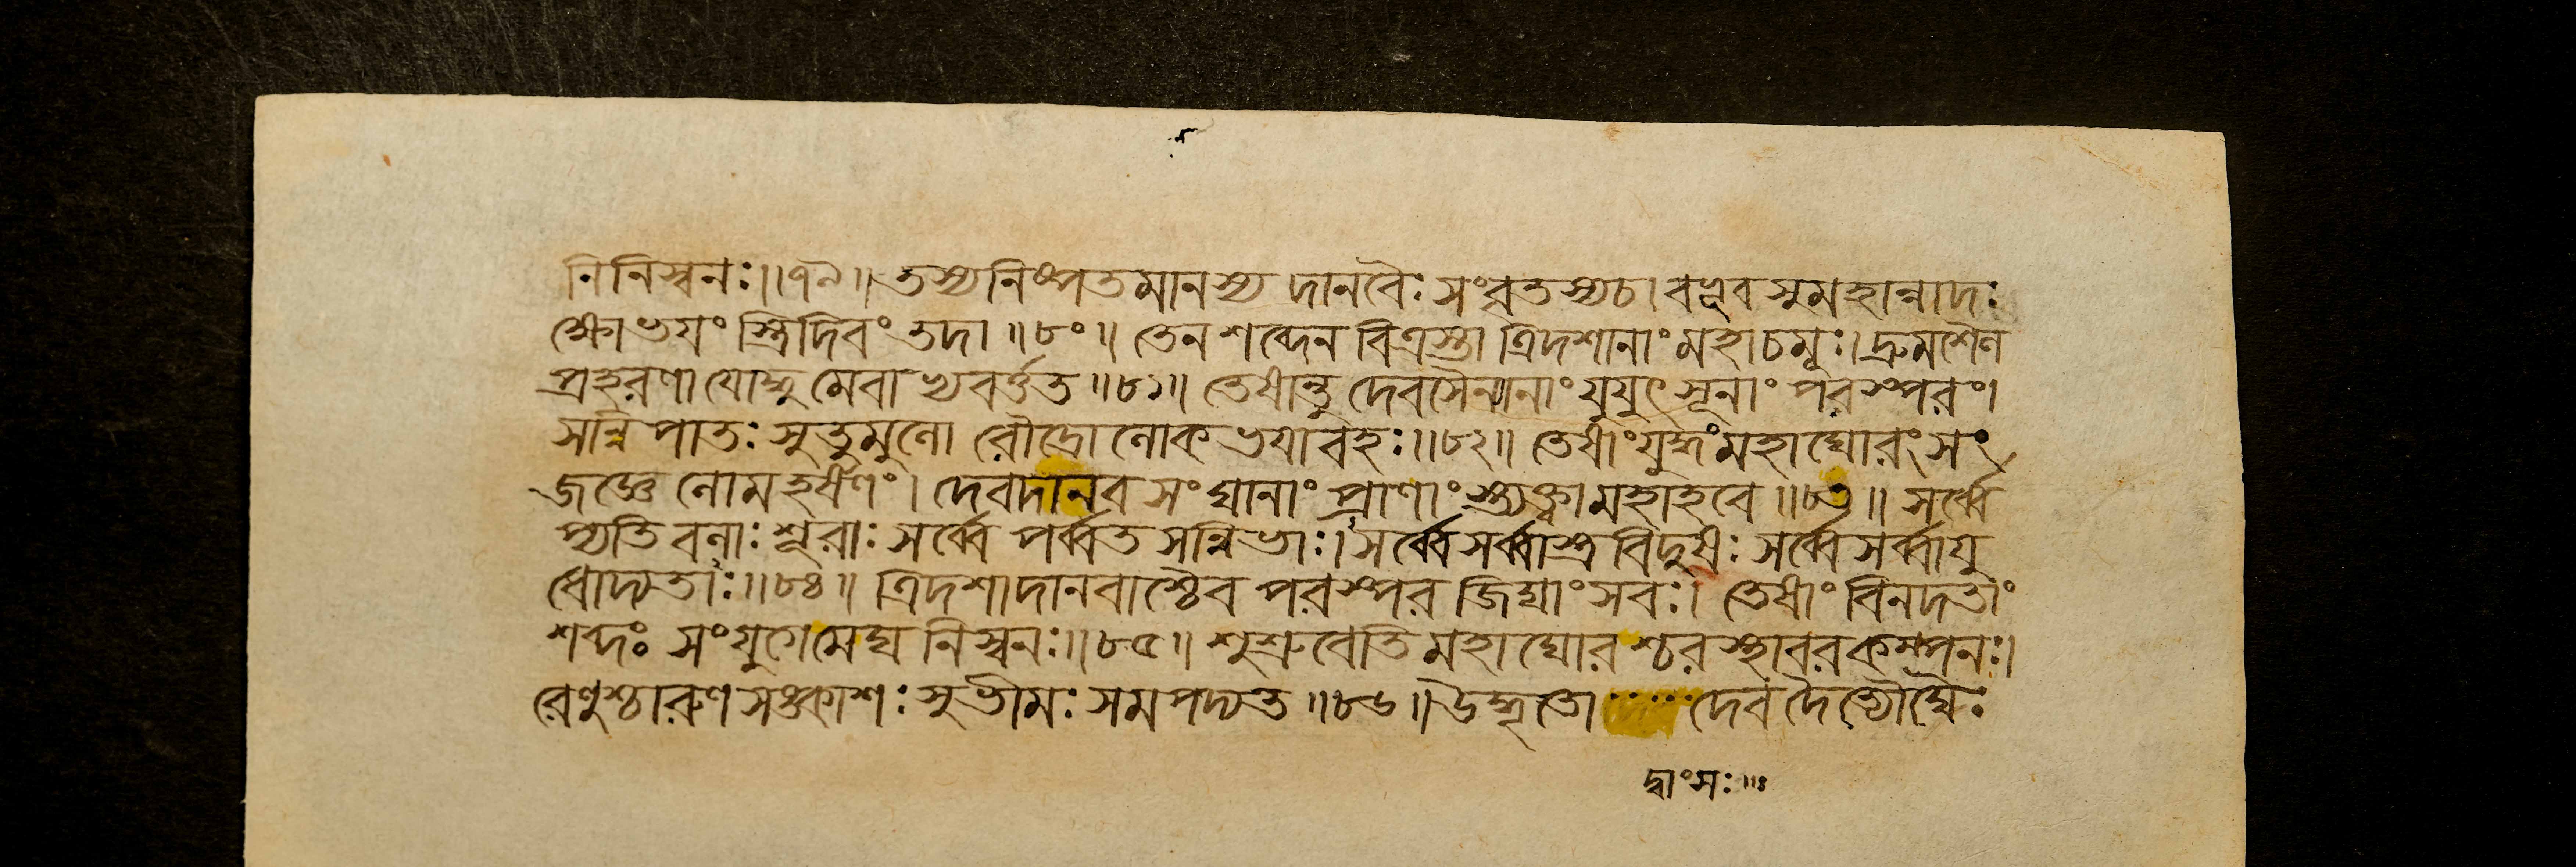 নিনিস্বনঃ॥৭৯॥ তস্যনিষ্পতমানস্য দানবৈঃ সংবৃতস্যচ। বভূব সুমহান্নাদঃ
ক্ষোভয়ং স্ত্রিদিবং তদা॥৮০॥ তেন শব্দেন বিত্রস্তা ত্রিদশানাং মহাচমূঃ। দ্রুমশৈল
প্রহরণা যোদ্ধুমেবাভ্যবর্ত্তত॥৮১॥ তেষান্তু দেবসৈন্যানাং যুযুৎসূনাং পরস্পরং।
সন্নিপাতঃ সুতুমুলো রৌদ্রো লোক ভয়াবহঃ॥৮২॥ তেষাং যুদ্ধং মহাঘোরং সং
জজ্ঞে লোমহর্ষণং। দেবদানব সংঘানাং প্রাণাং স্ত্যক্ত্বা মহাহবে॥৮৩॥ সর্ব্বে
প্যতি বলাঃ শূরাঃ সর্ব্বে পর্ব্বত সন্নিভাঃ। সর্ব্বে সর্ব্বাস্ত্র বিদুষঃ সর্ব্বে সর্ব্বায়ু
ধোদ্যতাঃ॥৮৪॥ ত্রিদশাদানবাশ্চৈব পরস্পর জিঘাংসবঃ। তেষাং বিনদতাং
শব্দঃ সংযুগে মেঘ নিস্বনঃ॥৮৫॥ শুশ্রুবেতি মহাঘোরশ্চর স্থাবর কম্পনঃ।
রেণুশ্চারুণ সঙ্কাশঃ সুভীমঃ সমপদ্যত॥৮৬॥ উদ্ধূতো দেব দৈত্যৌঘৈঃ
দ্বাংসঃ॥